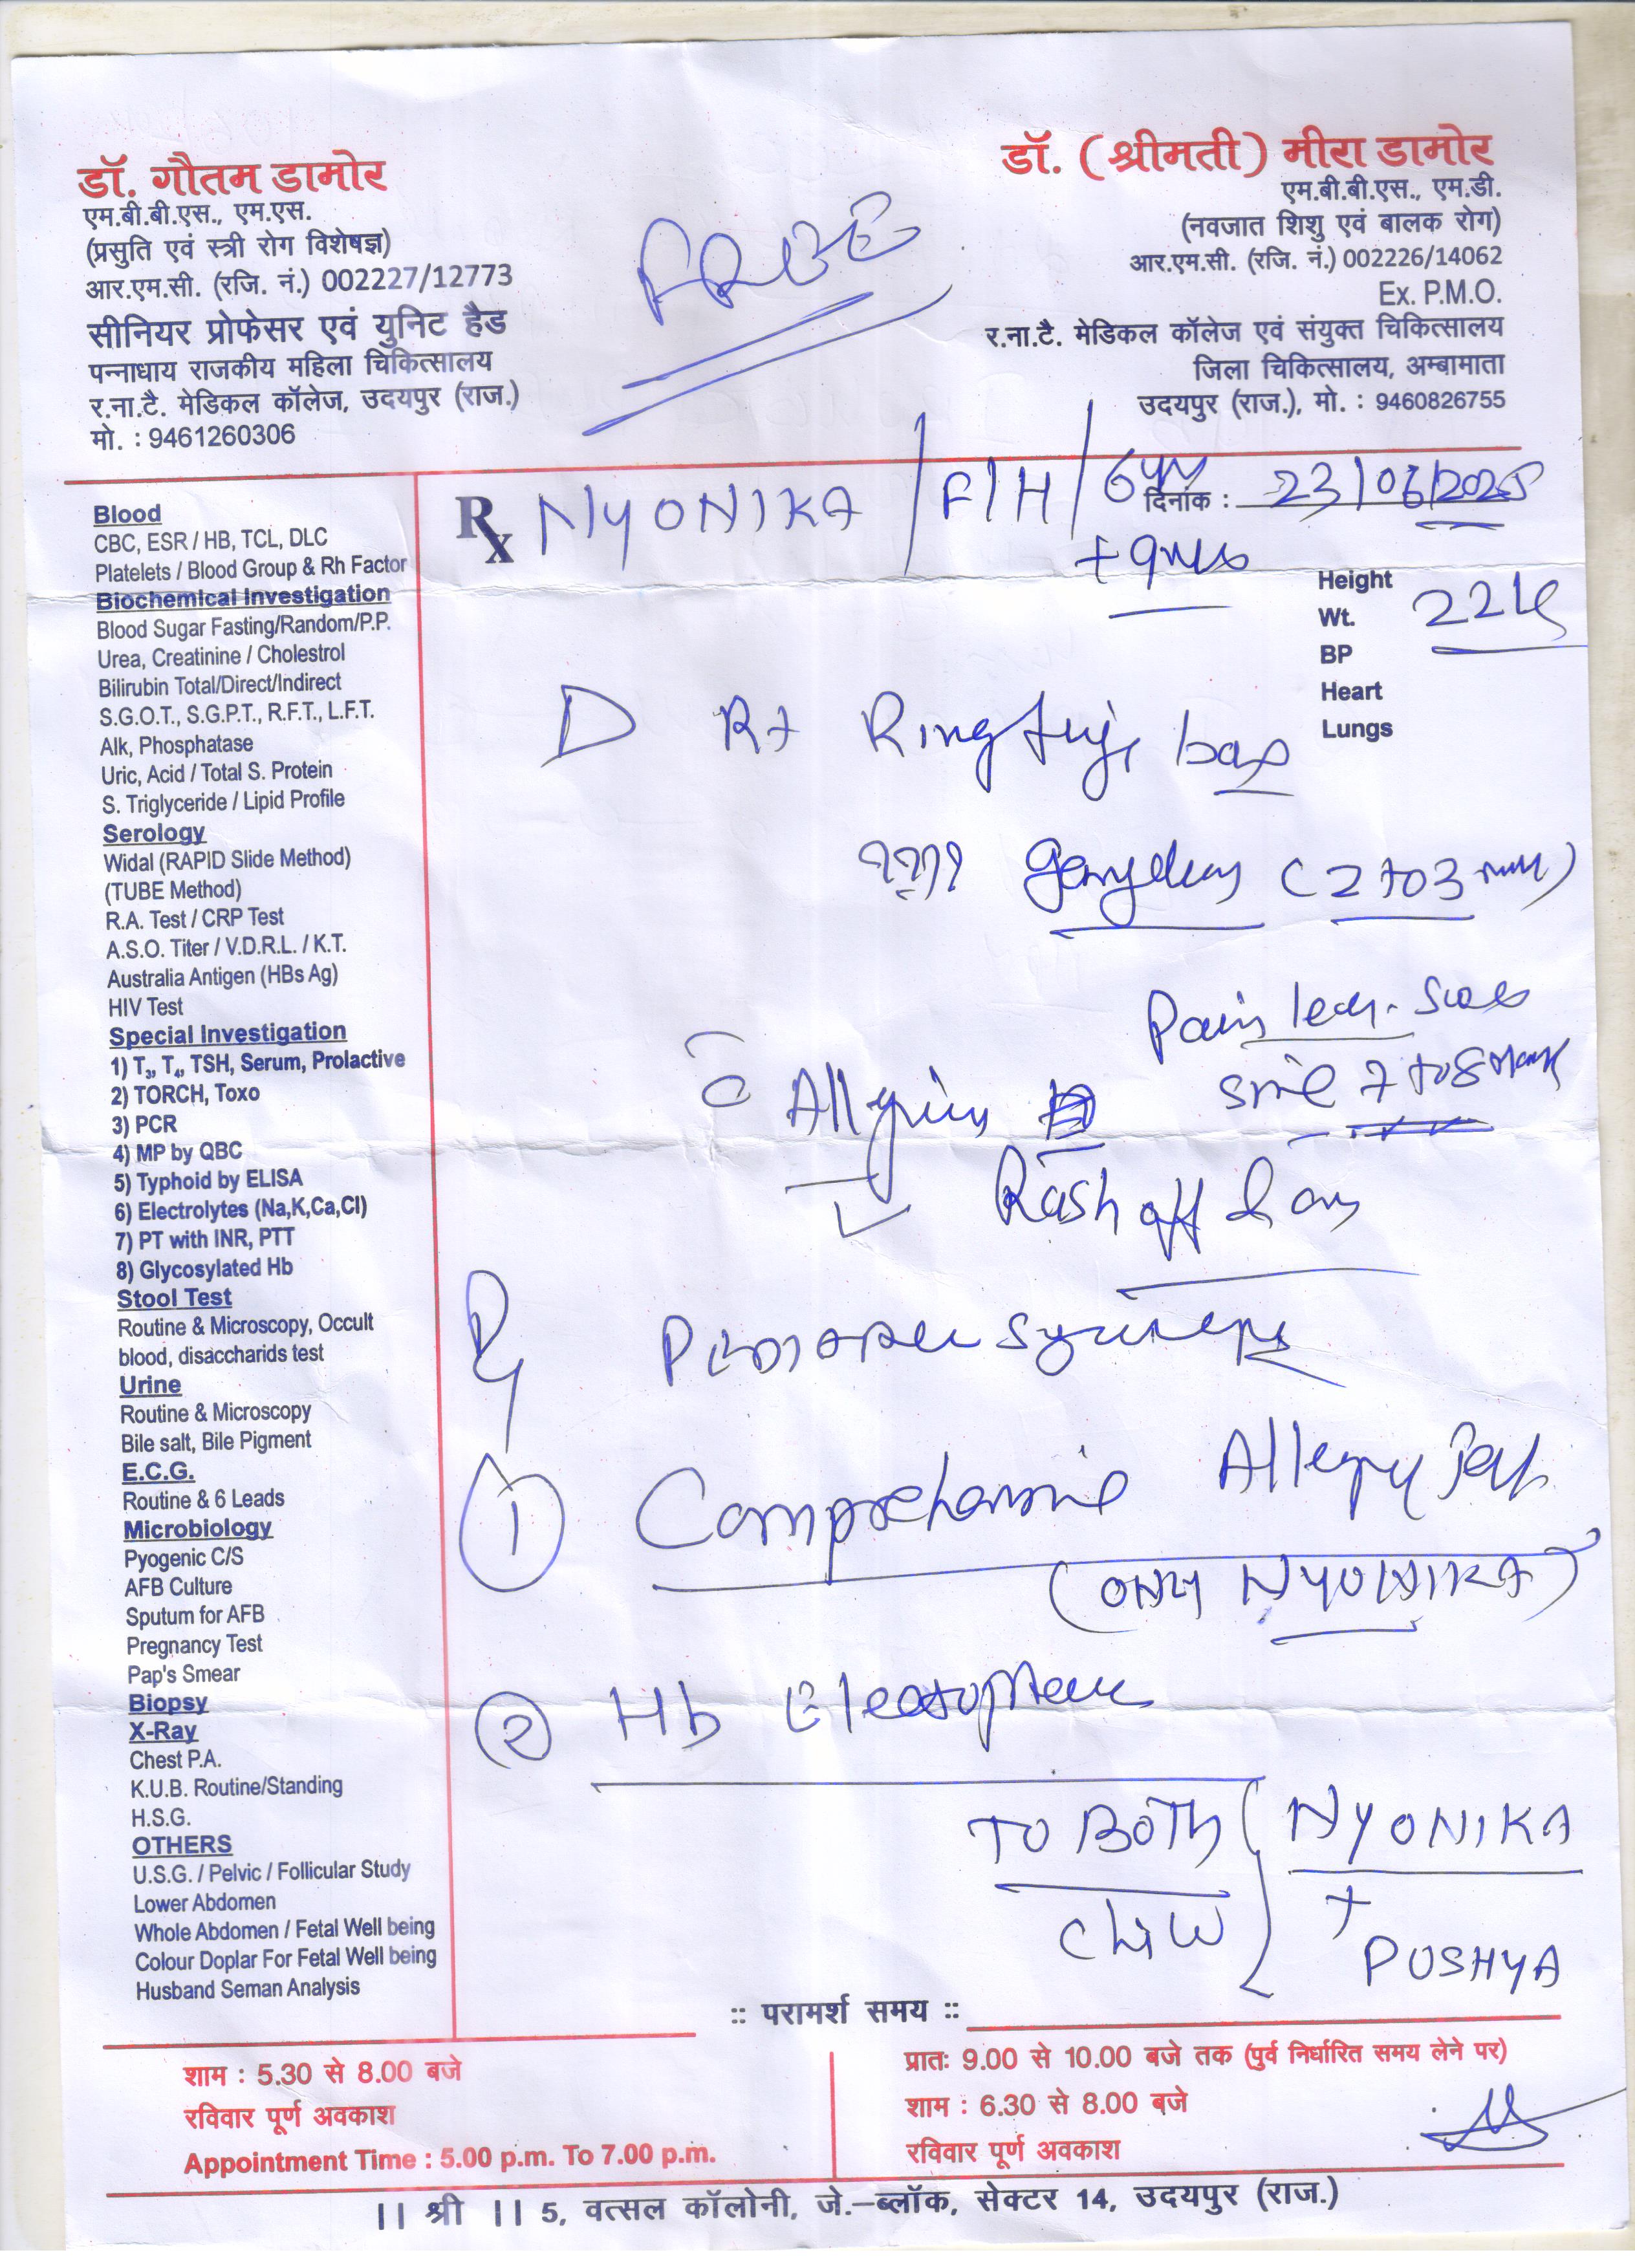 डॉ. गौतम डामोर
एम.बी.बी.एस., एम.एस.
(प्रसुति एवं स्त्री रोग विशेषज्ञ)
आर.एम.सी. (रजि. नं.) 002227/12773
सीनियर प्रोफेसर एवं युनिट हैड
पन्नाधाय राजकीय महिला चिकित्सालय
र.ना.टै. मेडिकल कॉलेज, उदयपुर (राज.)
मो. : 9461260306
FREE
डॉ. (श्रीमती) मीरा डामोर
एम.बी.बी.एस., एम.डी.
(नवजात शिशु एवं बालक रोग)
आर.एम.सी. (रजि. नं.) 002226/14062
Ex. P.M.O.
र.ना.टै. मेडिकल कॉलेज एवं संयुक्त चिकित्सालय
जिला चिकित्सालय, अम्बामाता
उदयपुर (राज.), मो. : 9460826755
Blood
CBC, ESR / HB, TCL, DLC
Platelets / Blood Group & Rh Factor
Biochemical Investigation
Blood Sugar Fasting/Random/P.P.
Urea, Creatinine / Cholestrol
Bilirubin Total/Direct/Indirect
S.G.O.T., S.G.P.T., R.F.T., L.F.T.
Alk, Phosphatase
Uric, Acid / Total S. Protein
S. Triglyceride / Lipid Profile
Serology
Widal (RAPID Slide Method)
(TUBE Method)
R.A. Test / CRP Test
A.S.O. Titer / V.D.R.L. / K.T.
Australia Antigen (HBs Ag)
HIV Test
Special Investigation
1) T3, T4, TSH, Serum, Prolactive
2) TORCH, Toxo
3) PCR
4) MP by QBC
5) Typhoid by ELISA
6) Electrolytes (Na,K,Ca,Cl)
7) PT with INR, PTT
8) Glycosylated Hb
Stool Test
Routine & Microscopy, Occult
blood, disaccharids test
Urine
Routine & Microscopy
Bile salt, Bile Pigment
E.C.G.
Routine & 6 Leads
Microbiology
Pyogenic C/S
AFB Culture
Sputum for AFB
Pregnancy Test
Pap's Smear
Biopsy
X-Ray
Chest P.A.
K.U.B. Routine/Standing
H.S.G.
OTHERS
U.S.G. / Pelvic / Follicular Study
Lower Abdomen
Whole Abdomen / Fetal Well being
Colour Doplar For Fetal Well being
Husband Seman Analysis
Rx NYONIKA / F/H / 6yr दिनांक : 23/06/2025
Height
Wt. 22
BP
Heart
Lungs
D Rt Ring
???? (2 to 3 mm)
Pain
7 to 8
Rash off & on
① Comprehensive Allergy
(ONLY NYONIKA)
② Hb
TO BOTH NYONIKA
+
PUSHYA
:: परामर्श समय ::
शाम : 5.30 से 8.00 बजे
रविवार पूर्ण अवकाश
Appointment Time : 5.00 p.m. To 7.00 p.m.
प्रातः 9.00 से 10.00 बजे तक (पुर्व निर्धारित समय लेने पर)
शाम : 6.30 से 8.00 बजे
रविवार पूर्ण अवकाश
|| श्री || 5, वत्सल कॉलोनी, जे.-ब्लॉक, सेक्टर 14, उदयपुर (राज.)